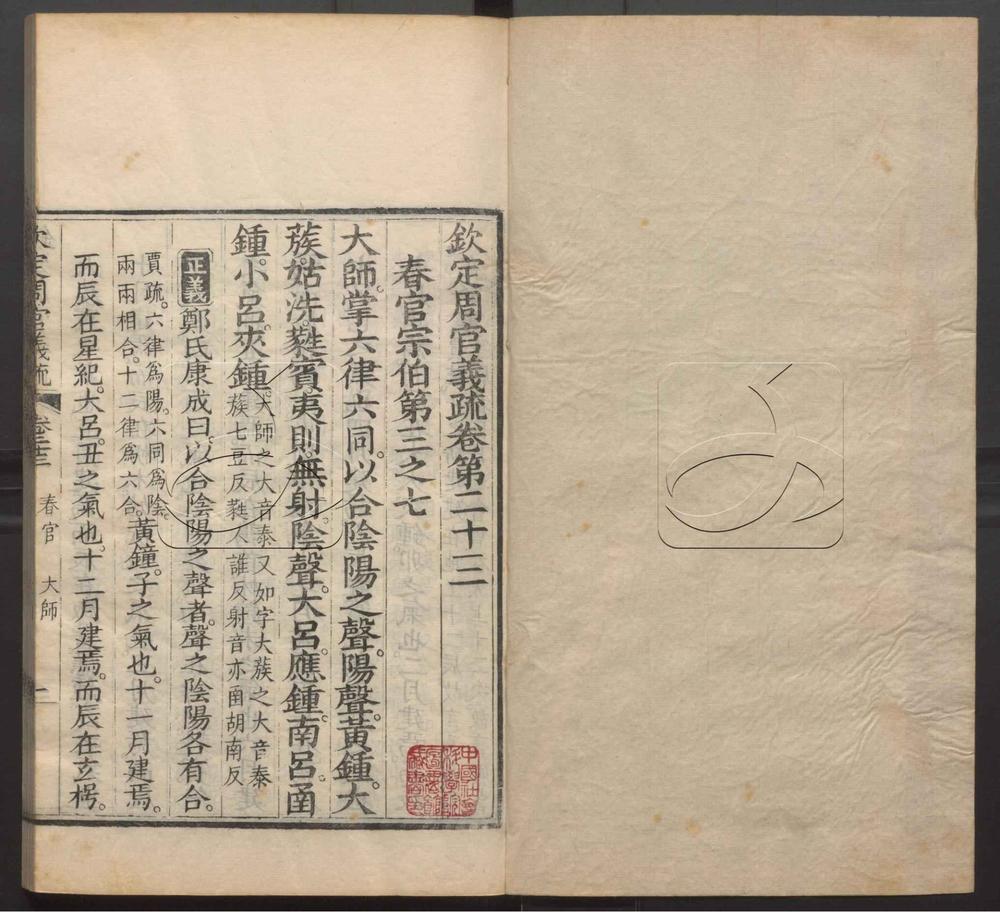 欽定周官義疏卷第二十三
春官宗伯第三之七
大師掌六律六同以合陰陽之聲陽聲黃鍾大
蔟姑洗蕤賓夷則無射陰聲大呂應鍾南呂函
鍾小呂夾鍾大師之大音泰又如字大蔟之大音泰
蔟七豆反蕤人誰反射音亦函胡南反
正義鄭氏康成曰以合陰陽之聲者聲之陰陽各有合
賈疏六律爲陽六同爲陰
兩兩相合十二律爲六合黃鐘子之氣也十一月建焉
而辰在星紀大呂丑之氣也十二月建焉而辰在玄枵
欽定周官義疏 卷二十三 春官 大師 一